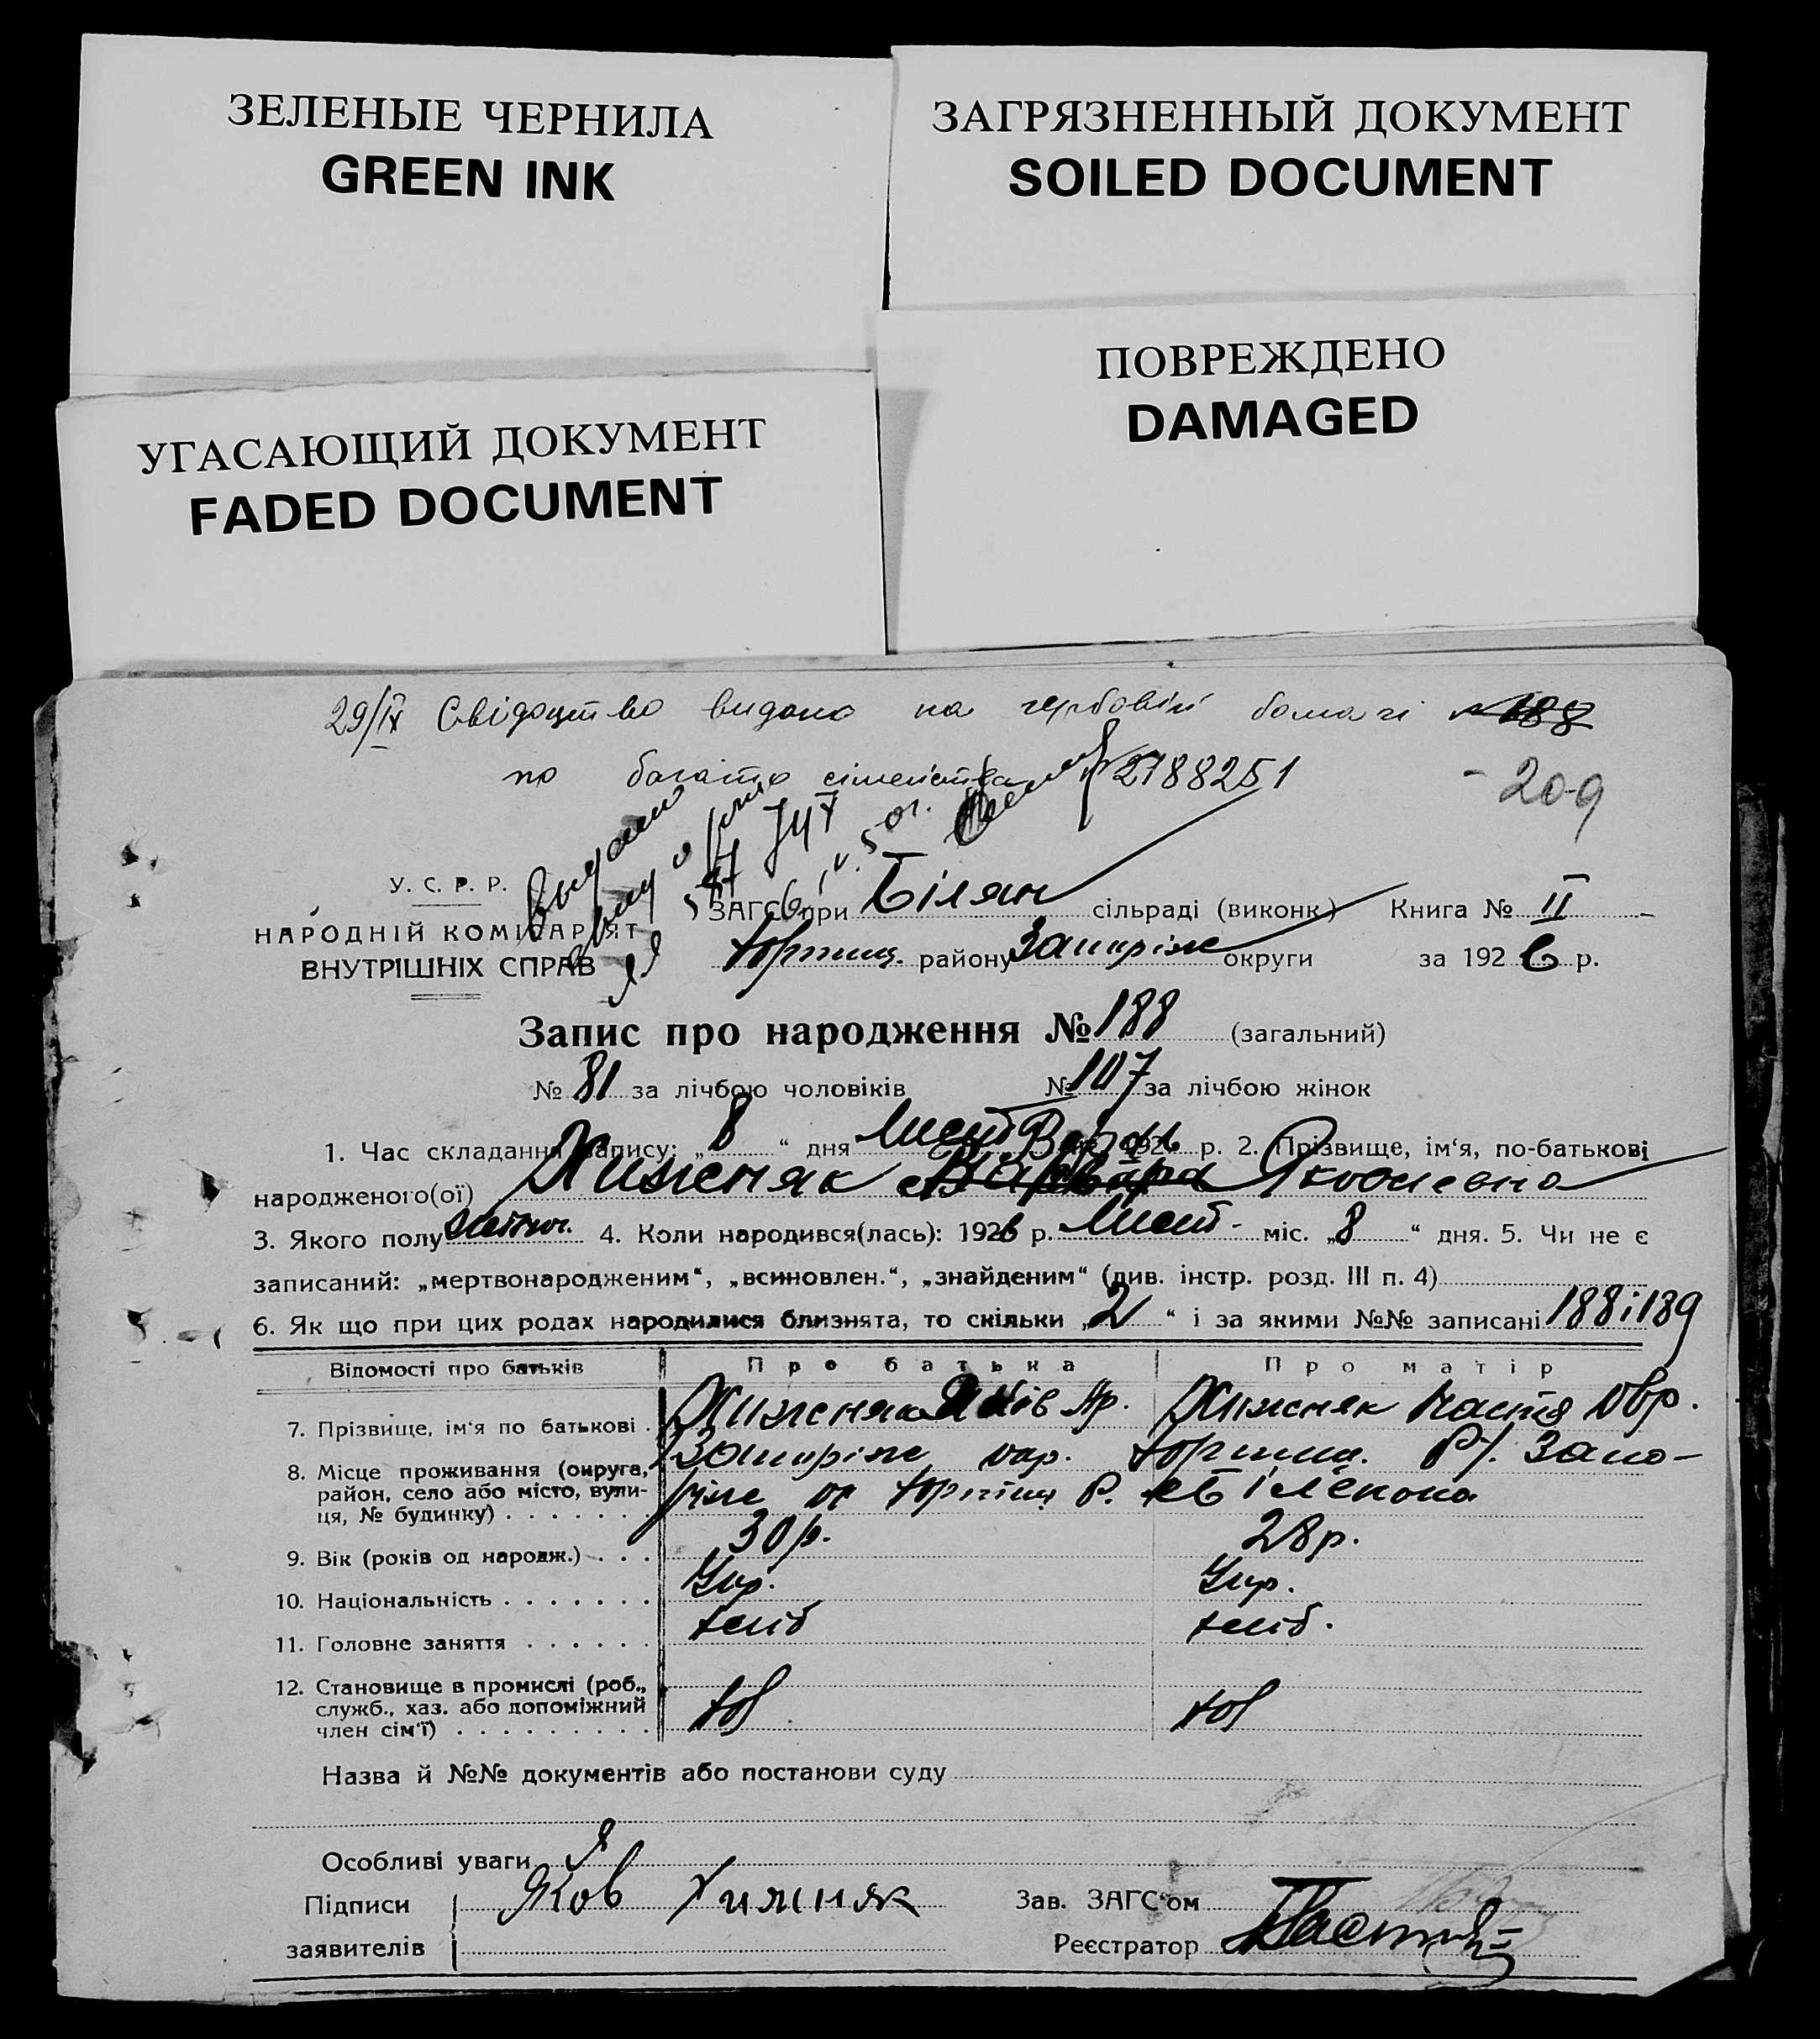 ЗЕЛЕНЫЕ ЧЕРНИЛА
GREEN INK
ЗАГРЯЗНЕННЫЙ ДОКУМЕНТ
SOILED DOCUMENT
УГАСАЮЩИЙ ДОКУМЕНТ
FADED DOCUMENT
ПОВРЕЖДЕНО
DAMAGED
29/IX Свідоцтво видано на гербовій бомагі № 188
по багато сімейства № 2188251
- 209
У. С. Р. Р.
НАРОДНІЙ КОМІСАРІЯТ
ВНУТРІШНІХ СПРАВ
ЗАГС при Білян сільраді (виконк.) Книга № II
Хортиц. району Запоріж округи за 1926 р.
Запис про народження № 188 (загальний)
№ 81 за лічбою чоловіків № 107 за лічбою жінок
1. Час складання запису: „ 8 “ дня Лист 1926 р. 2. Прізвище, ім‘я, по-батькові
народженого(ої) Хижсняк Варвара Яковлевна
3. Якого полу жіноч. 4. Коли народився(лась): 1926 р. Лист- міс. „ 8 “ дня. 5. Чи не є
записаний: „мертвонародженим“, „всиновлен.“, „знайденим“ (див. інстр. розд. III п. 4)
6. Як що при цих родах народилися близнята, то скільки „ 2 “ і за якими №№ записані 188 і 189
Відомості про батьків Про батька Про матір
7. Прізвище, ім‘я по батькові Хижсняк Яків Хижсняк Настя
8. Місце проживання (округа, Запоріж окр. Хортиц. Р. Запо-
район, село або місто, вули- ріж ок Хортиц Р.
ця, № будинку)
9. Вік (років од народж.) 30 р. 28 р.
10. Національність Укр. Укр.
11. Головне заняття хліб хліб.
12. Становище в промислі (роб.,
служб., хаз. або допоміжний
член сім‘ї)
Назва й №№ документів або постанови суду
Особливі уваги
Підписи Яков Хижняк Зав. ЗАГС‘ом
заявителів Реєстратор